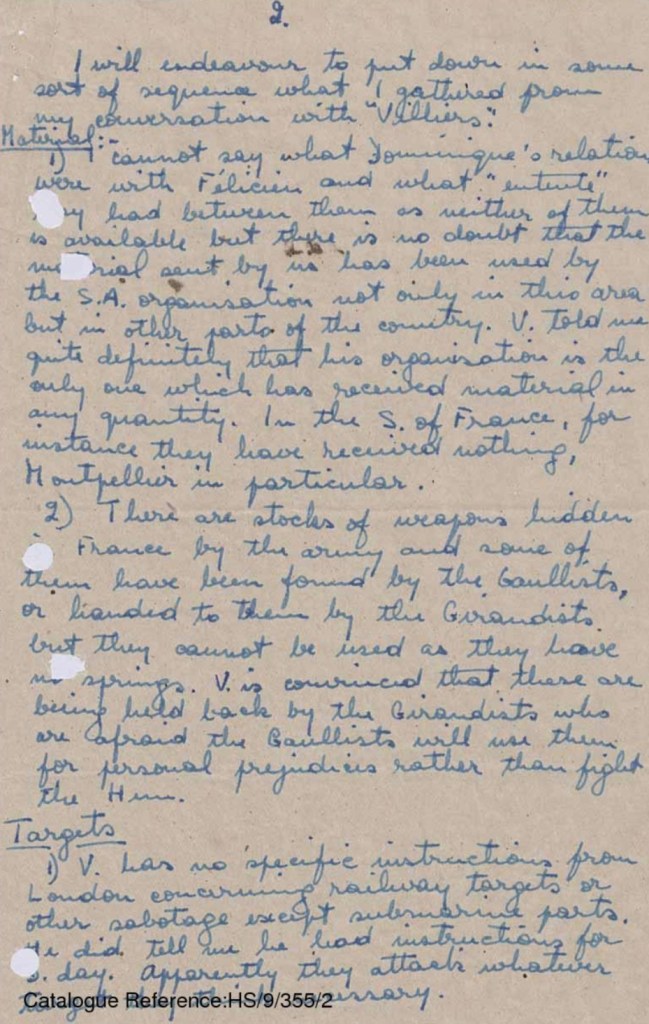 2.
I will endeavour to put down in some
sort of sequence what I gathered from
my conversation with "Villiers".
Material:-
1) I cannot say what Dominique's relation
were with Félicien and what "entente"
had between them as neither of them
is available but there is no doubt that the
sent by us has been used by
the S.A. organisation not only in this area
but in other parts of the country. V. told me
quite definitely that his organisation is the
only one which has received material in
any quantity. In the S. of France, for
instance they have received nothing,
Montpellier in particular.
2) There are stocks of weapons hidden
France by the army and some of
them have been found by the Gaullists,
or handed to them by the Giraudists
but they cannot be used as they have
no springs. V. is convinced that these are
being held back by the Giraudists who
are afraid the Gaullists will use them
for personal prejudices rather than fight
the Hun.
Targets
1) V. has no specific instructions from
London concerning railway targets or
other sabotage except submarine parts.
He did tell me he had instructions for
day. Apparently they attack whatever
they
Catalogue Reference:HS/9/355/2